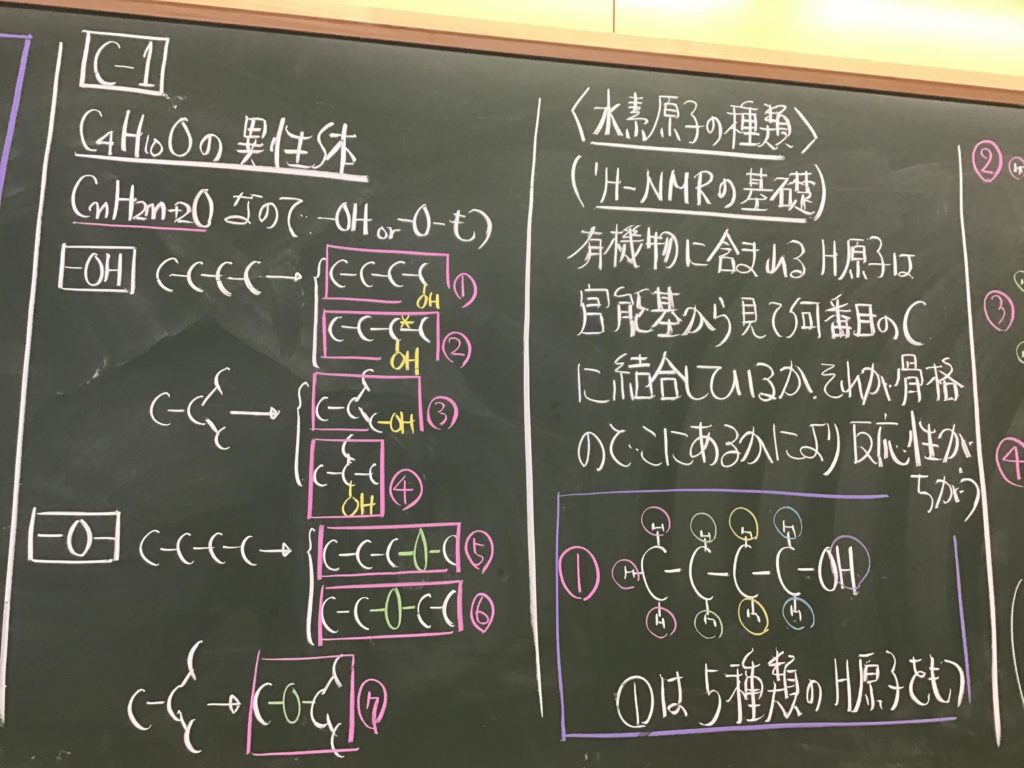 C-1
C4H10Oの異性体
CnH2n+2O なので -OH or -O- もつ
-OH C-C-C-C → C-C-C-C OH ①
C-C-C*-C OH ②
C-C-C C → C-C-C C-OH ③
C-C-C C OH ④
-O- C-C-C-C → C-C-C-O-C ⑤
C-C-O-C-C ⑥
C-C-C C → C-O-C-C C ⑦
〈水素原子の種類〉
(¹H-NMRの基礎)
有機物に含まれるH原子は
官能基から見て何番目のC
に結合しているか、それが骨格
のどこにあるかにより反応性が
ちがう
① H-C-C-C-C-OH
H H H H
H H H H
①は5種類のH原子をもつ
②
③
④